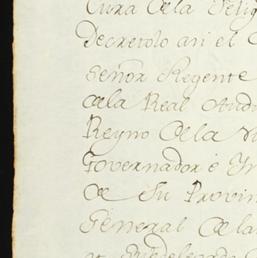 Cura de la Felig
Decretolo asi el
Señor Regente
de la Real Audi
Reyno de la Nu
Governador é Yn
de Su Provin
General de la
y Subdelegado